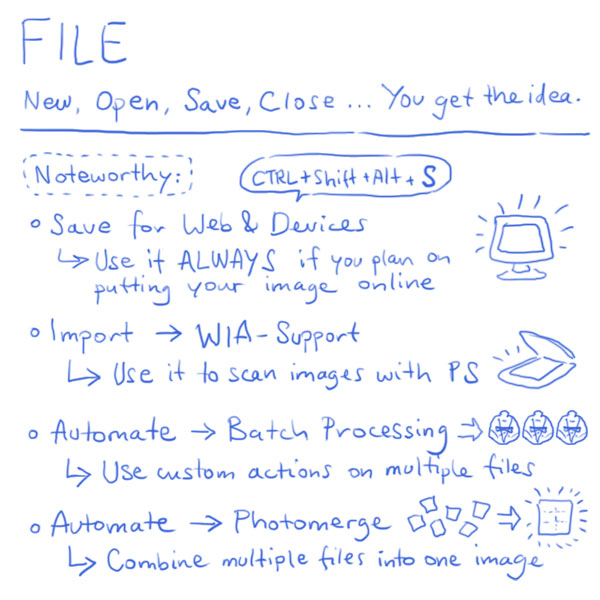 FILE
New, Open, Save, Close ... You get the idea.
Noteworthy:
CTRL+Shift+Alt+S
Save for Web & Devices
↳ Use it ALWAYS if you plan on
putting your image online
Import → WIA-Support
↳ Use it to scan images with PS
Automate → Batch Processing ⇒
↳ Use custom actions on multiple files
Automate → Photomerge ⇒
↳ Combine multiple files into one image